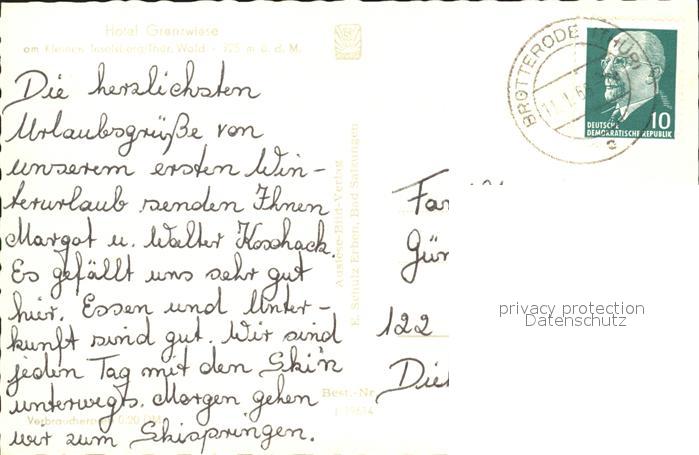 Hotel Grenzwiese
am Kleinen Inselsberg/Thür. Wald - 725 m ü. d. M.
Die herzlichsten
Urlaubsgrüße von
unserem ersten Win-
terurlaub senden Ihnen
Margot u. Walter Koschack.
Es gefällt uns sehr gut
hier. Essen und Unter-
kunft sind gut. Wir sind
jeden Tag mit den Ski'n
unterwegs. Morgen gehen
wir zum Skispringen.
Verbraucherpreis 0,20 DM
Auslese-Bild-Verlag
E. Schulz Erben, Bad Salzungen
Best.-Nr.
BROTTERODE (THÜR)
DEUTSCHE
DEMOKRATISCHE REPUBLIK
10
122
privacy protection
Datenschutz